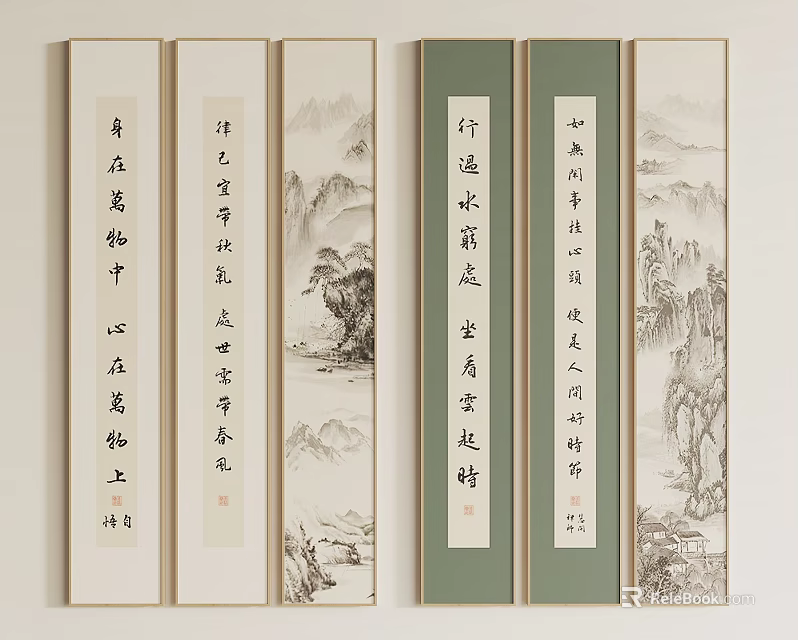 身在萬物中 心在萬物上
自悟
律己宜帶秋氣 處世需帶春風
行過水窮處 坐看雲起時
如無閑事挂心頭 便是人間好時節
慧開
禪師
ReleBook.com